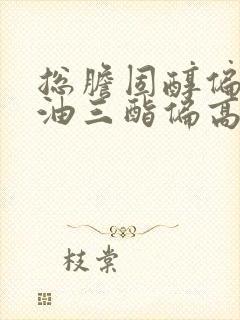 总胆固醇偏
油三酯偏高
枝棠